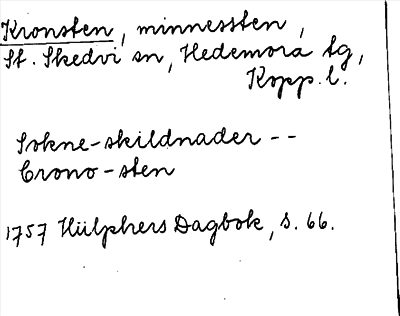 Kronsten, minnessten,
St. Skedvi sn, Hedemora tg,
Kopp. l.
Sokne-skildnader --
Crono-sten
1757 Hülphers Dagbok, s. 66.